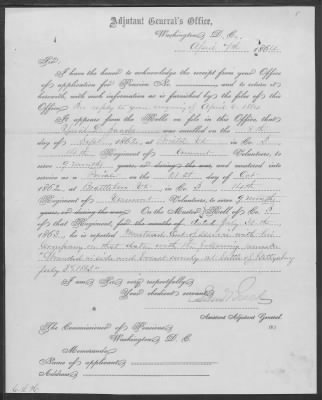 Adjutant General's Office,
Washington, D. C.,
April 7th, 1864.
Sir:
I have the honor to acknowledge the receipt from your Office
of application for Pension No. and to return it
herewith, with such information as is furnished by the files of this
Office. In reply to your enquiry of April 2, 1864
It appears from the Rolls on file in this Office, that
was enrolled on the 8th
day of Sept, 1862, at Bristol Vt, in Co.
14th Regiment of Vermont Volunteers, to serve
9 months years, or during the war, and mustered into
service as a Private on the 21st day of Oct
1862, at Brattleboro Vt, in Co. 14th
Regiment of Vermont Volunteers, to serve 9 months
years, or during the war. On the Muster Roll of Co.
of that Regiment, for the months of dated July 30th
1863, he is reported Mustered out of service with his
Company on that date, with the following remark
"Wounded in side and breast severely at battle of Gettysburg
July 3d 1863"
I am, Sir, very respectfully,
Your obedient servant,
Assistant Adjutant General.
The Commissioner of Pensions,
Washington, D. C.
Memoranda:
Name of applicant
Address